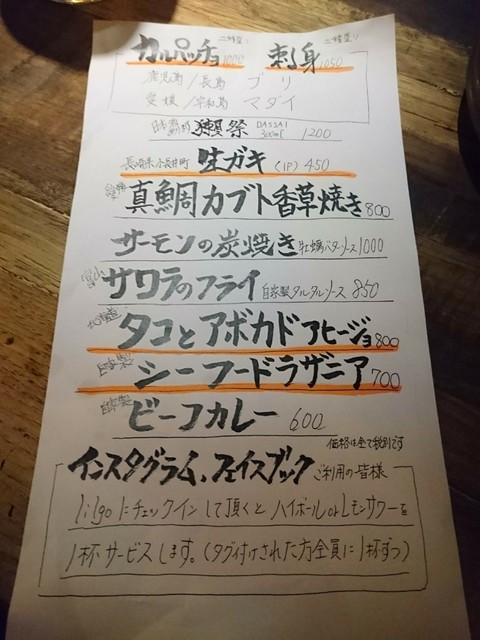 二種盛り 二種盛り
カルパッチョ 1000 刺身 1050
鹿児島/長島 ブリ
愛媛/宇和島 マダイ
獺祭 DASSAI 300ml 1200
長崎県小長井町 生ガキ (1P) 450
愛媛 真鯛カブト香草焼き 800
サーモンの炭焼き 牡蠣バターソース 1000
サワラのフライ 自家製タルタルソース 850
北海道 タコとアボカドアヒージョ 800
自家製 シーフードラザニア 700
自家製 ビーフカレー 600
価格は全て税別です
インスタグラム、フェイスブック ご利用の皆様
にチェックインして頂くとハイボールorレモンサワーを
1杯サービスします。(タグ付けされた方全員に1杯ずつ)